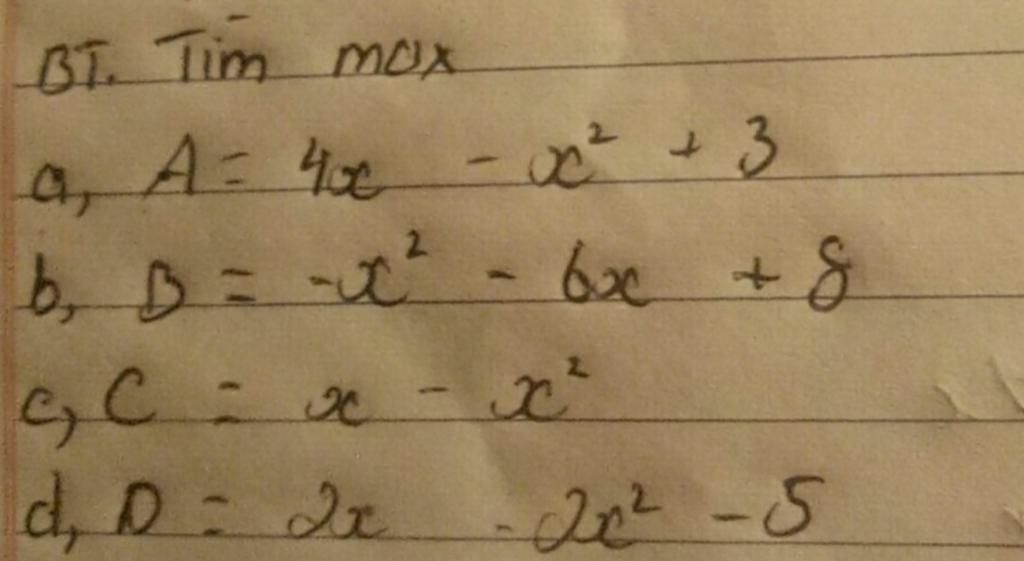 BT. Tìm max
a, A = 4x - x² + 3
b, B = -x² - 6x + 8
c, C = x - x²
d, D = 2x - 2x² - 5